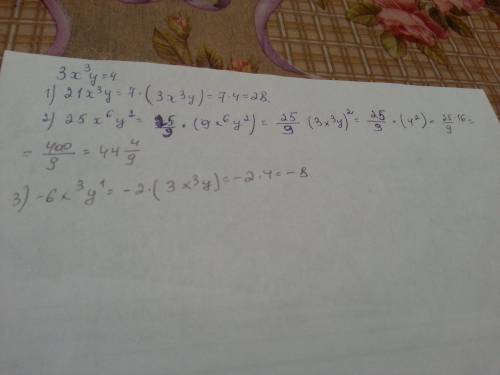 3x³y=4
1) 21x³y = 7·(3x³y) = 7·4 = 28.
2) 25x⁶y² = 25/9 · (9x⁶y²) = 25/9 (3x³y)² = 25/9 · (4²) = 25·16/9 =
= 400/9 = 44 4/9
3) -6x³y¹ = -2·(3x³y) = -2·4 = -8